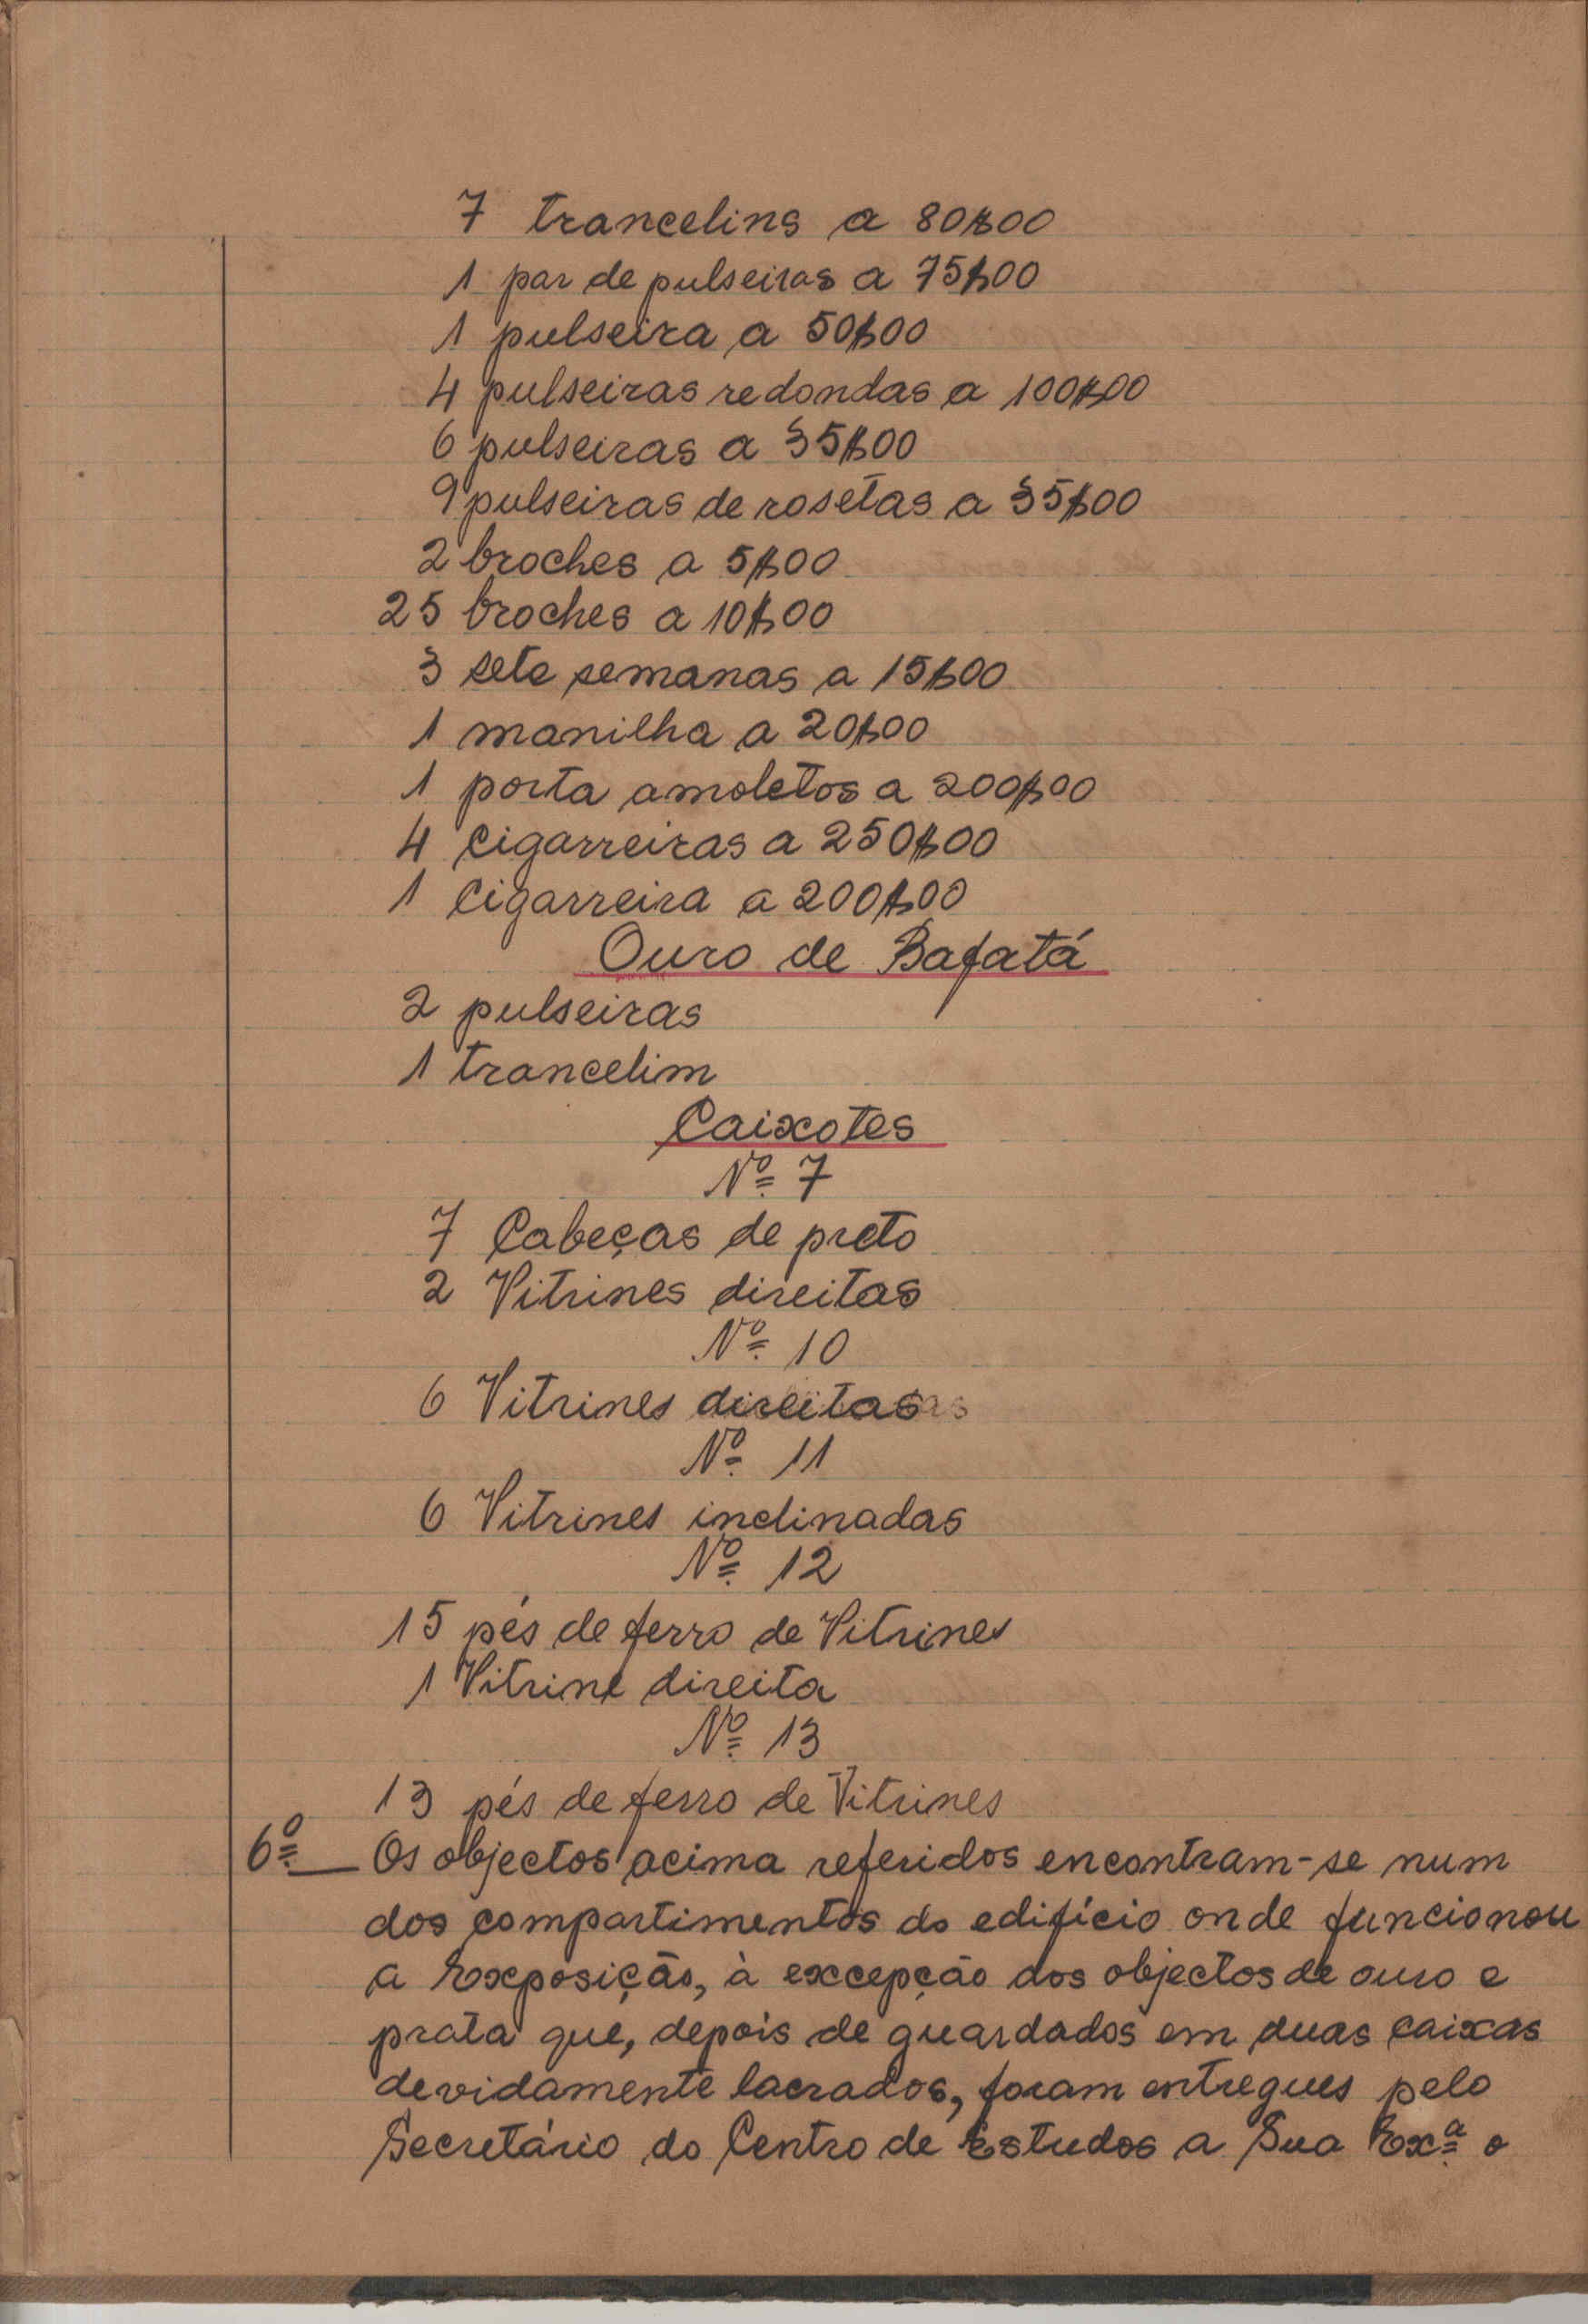 7 trancelins a 80$00
1 par de pulseiras a 75$00
1 pulseira a 50$00
4 pulseiras redondas a 100$00
6 pulseiras a 35$00
9 pulseiras de rosetas a 35$00
2 broches a 5$00
25 broches a 10$00
3 sete semanas a 15$00
1 manilha a 20$00
1 porta amoletos a 200$00
4 Cigarreiras a 250$00
1 Cigarreira a 200$00
Ouro de Bafatá
2 pulseiras
1 trancelim
Caixotes
Nº 7
7 Cabeças de preto
2 Vitrines direitas
Nº 10
6 Vitrines direitas
Nº 11
6 Vitrines inclinadas
Nº 12
15 pés de ferro de Vitrines
1 Vitrine direita
Nº 13
13 pés de ferro de Vitrines
6º — Os objectos acima referidos encontram-se num
dos compartimentos do edifício onde funcionou
a Exposição, à excepção dos objectos de ouro e
prata que, depois de guardados em duas caixas
devidamente lacrados, foram entregues pelo
Secretário do Centro de Estudos a Sua Exª o